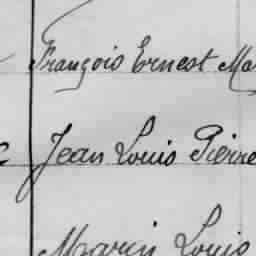 François Ernest Ma
c Jean Louis Pierre
Marin Louis